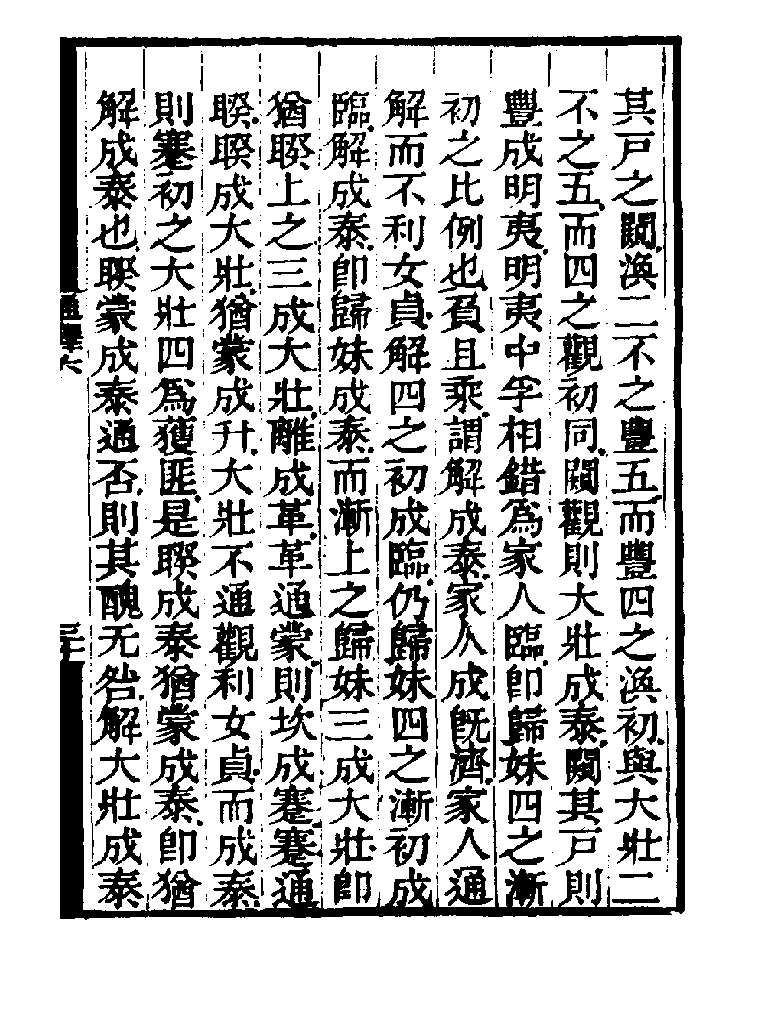 其戸之闚渙二不之豐五而豐四之渙初與大壯二
不之五而四之觀初同闚觀則大壯成泰闚其戸則
豐成明夷明夷中孚相錯爲家人臨卽歸妹四之漸
初之比例也負且乘謂解成泰家人成旣濟家人通
解而不利女貞解四之初成臨仍歸妹四之漸初成
臨解成泰卽歸妹成泰而漸上之歸妹三成大壯卽
猶睽上之三成大壯離成革革通蒙則坎成蹇蹇通
睽睽成大壯猶蒙成升大壯不通觀利女貞而成泰
則蹇初之大壯四爲獲匪是睽成泰猶蒙成泰卽猶
解成泰也睽蒙成泰通否則其醜无咎解大壯成泰
通釋六
三十